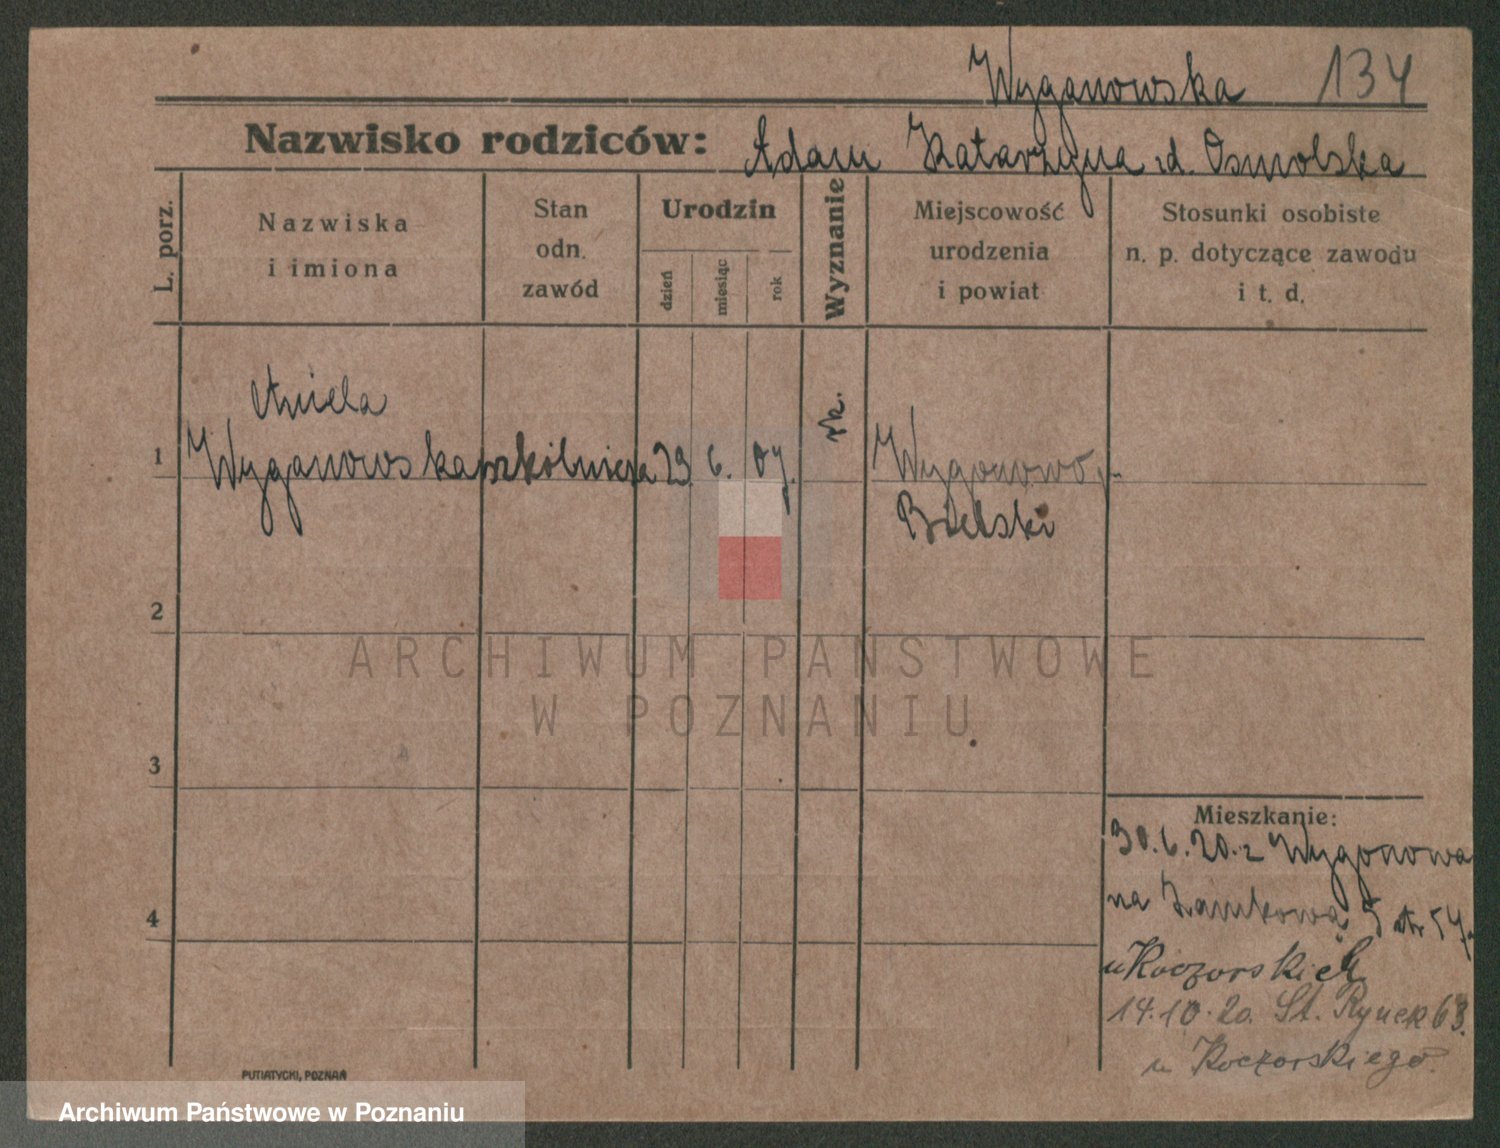 Wyganowska 134
Nazwisko rodziców: Adam Katarzyna z d. Osmolska
L. porz.
Nazwiska
i imiona
Stan
odn.
zawód
Urodzin
dzień
miesiąc
rok
Wyznanie
Miejscowość
urodzenia
i powiat
Stosunki osobiste
n. p. dotyczące zawodu
i t. d.
Aniela
1 Wyganowska 29 6. 07. rk. Wygonowo,
Bielski
2
3
4
ARCHIWUM PAŃSTWOWE
W POZNANIU
Mieszkanie:
30.6.20. z Wygonowa
na Zamkową 5
u Koczorskich
14.10.20. St. Rynek 63.
u Koczorskiego.
PUTIATYCKI, POZNAŃ
Archiwum Państwowe w Poznaniu